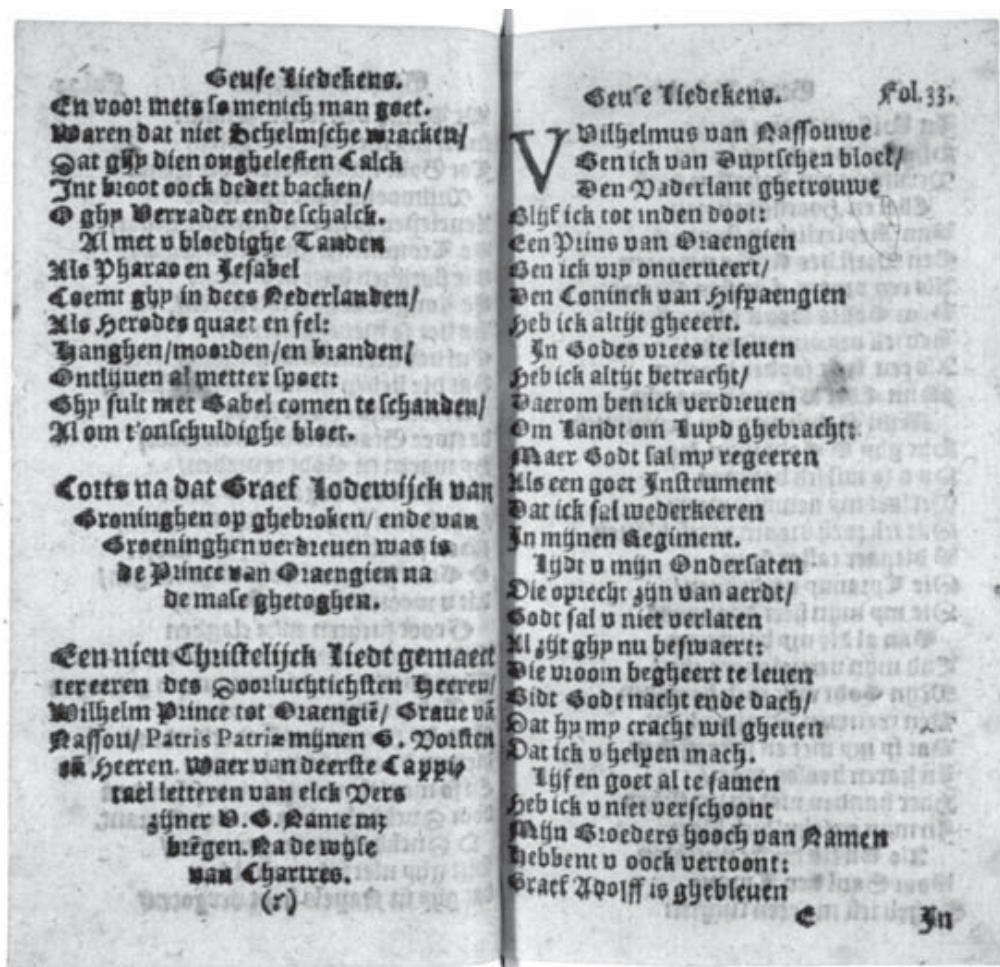 Geuse Liedekens.
En voor mets so menich man goet.
Waren dat niet Schelmsche wracken/
Dat ghy dien onghelesten Calck
Int broot oock dedet backen/
O ghy Verrader ende schalck.
Al met u bloedighe Tanden
Als Pharao en Jesabel
Coemt ghy in dees Nederlanden/
Als Herodes quaet en fel:
Hanghen/moorden/en branden/
Ontlijuen al metter spoet:
Ghy sult met Babel comen te schanden/
Al om t'onschuldighe bloet.
Corts na dat Graef Lodewijck van
Groninghen op ghebroken/ ende van
Groeninghen verdreuen was is
de Prince van Oraengien na
de mase ghetoghen.
Een nieu Christelijck Liedt gemaect
ter eeren des Doorluchtichsten Heeren/
Wilhelm Prince tot Oraengiē/ Graue vā
Nassou/ Patris Patriæ mijnen G. Vorsten
eñ Heeren. Waer van deerste Cappi-
tael letteren van elck Vers
zijner V. G. Name m;
brēgen. Na de wijse
van Chartres.
Geuse Liedekens. Fol. 33.
VVilhelmus van Nassouwe
Ben ick van Duytschen bloet/
Den Vaderlant ghetrouwe
Blijf ick tot inden doot:
Een Prins van Oraengien
Ben ick vry onuerueert/
Den Coninck van Hispaengien
Heb ick altijt gheeert.
In Godes vrees te leuen
Heb ick altijt betracht/
Daerom ben ick verdreuen
Om Landt om Luyd ghebracht:
Maer Godt sal my regeeren
Als een goet Instrument
Dat ick sal wederkeeren
In mijnen Regiment.
Lijdt u mijn Ondersaten
Die oprecht zijn van aerdt/
Godt sal u niet verlaten
Al zijt ghy nu beswaert:
Die vroom begheert te leuen
Bidt Godt nacht ende dach/
Dat hy my cracht wil gheuen
Dat ick u helpen mach.
Lijf en goet al te samen
Heb ick u niet verschoont
Mijn Broeders hooch van Namen
Hebbent u oock vertoont:
Graef Adolff is ghebleuen
E In